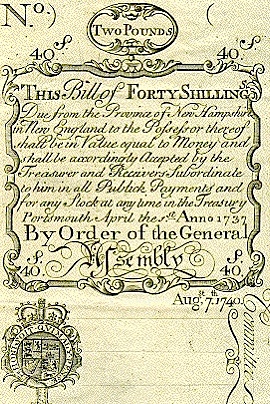 No. ( )
TWO POUNDS
40 S. 40 S.
THIS Bill of FORTY SHILLING
Due from the Province of New Hampshire
in New England to the Possessor thereof
shall be in Value equal to Money and
shall be accordingly Accepted by the
Treasurer and Receivers Subordinate
to him in all Publick Payments and
for any Stock at any time in the Treasury
Portsmouth April the 1st. Anno 1737
By Order of the General
S. Assembly S.
40. 40.
Aug. 7. 1740.
Committee